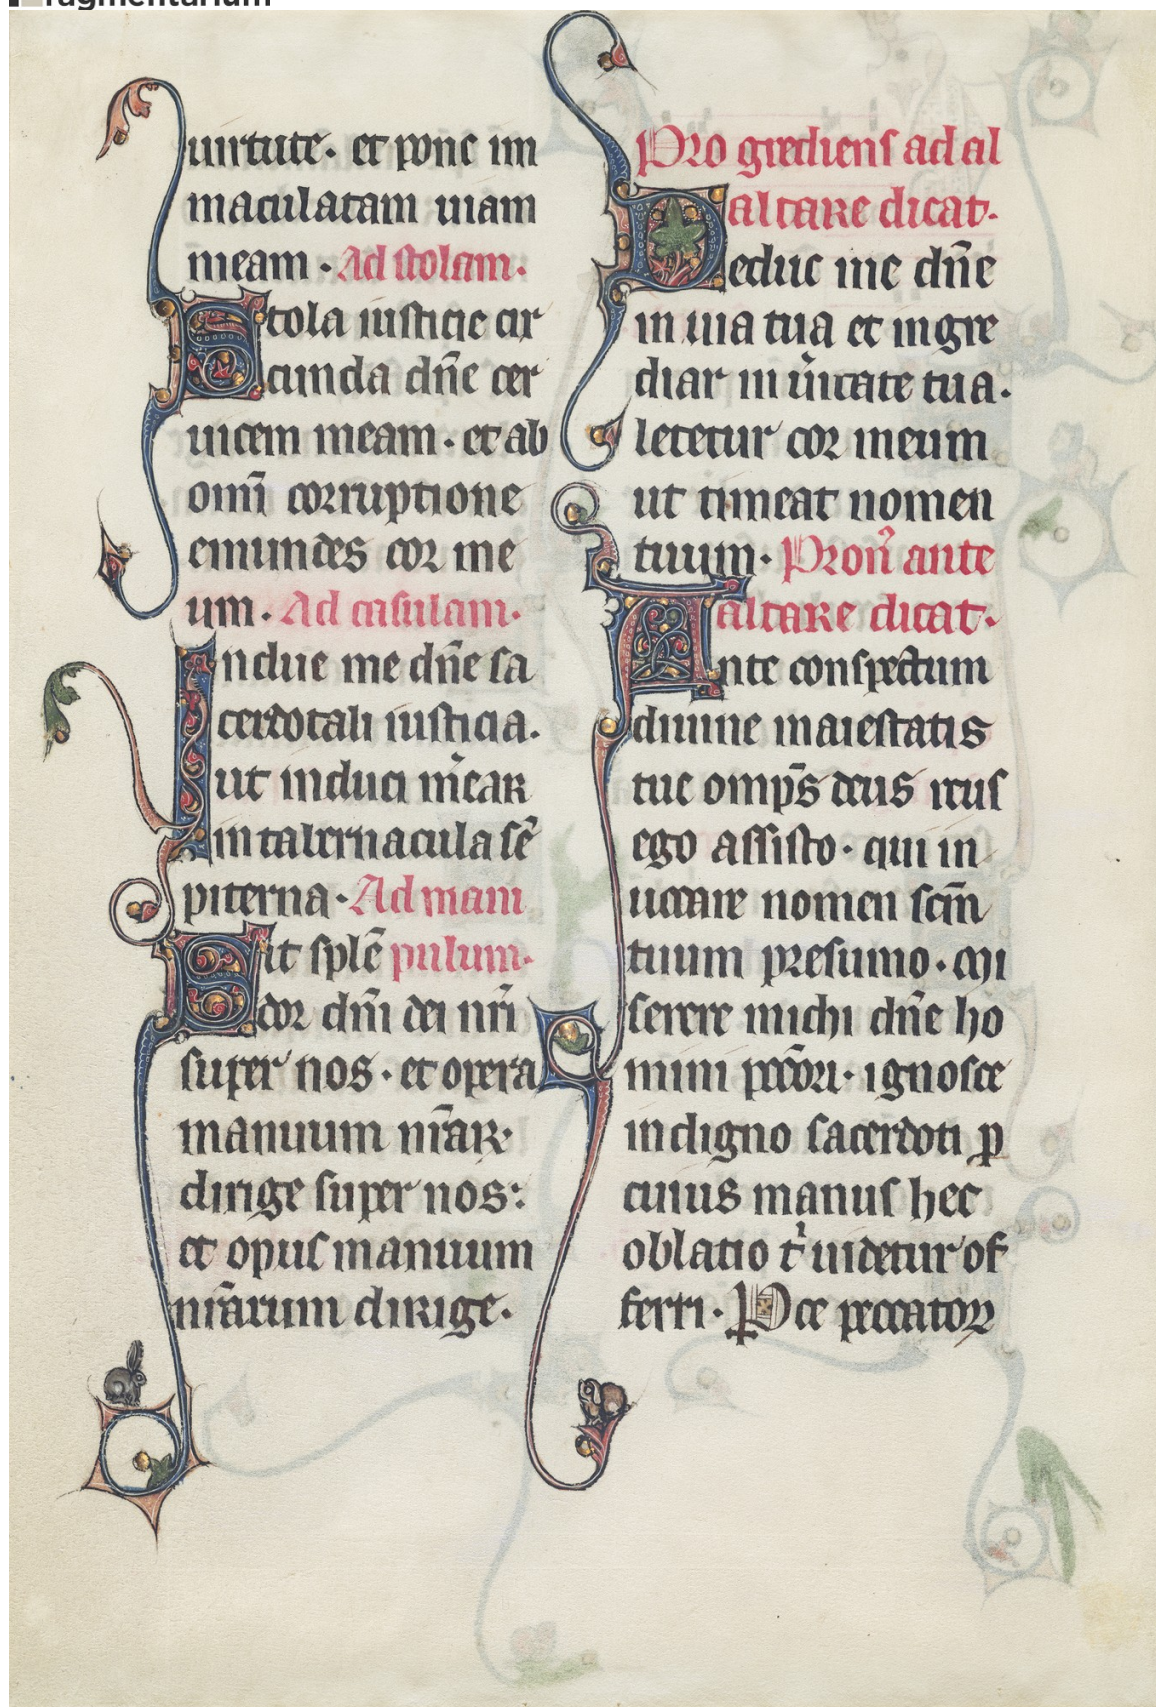 ragmentarium
uirtute. et pone im
maculatam uiam
meam. Ad stolam.
Stola iusticie cir
cunda dn̄e cer
uicem meam. et ab
om̄i corruptione
emundes cor me
um. Ad casulam.
Indue me dn̄e sa
cerdotali iusticia.
ut induci m̓ear
in tabernacula sē
piterna. Ad mani
Sit splē pulum.
dor dn̄i dei nr̄i
super nos. et opera
manuum nr̄ar.
dirige super nos:
et opus manuum
nr̄arum dirige.
Pro grediens ad al
altare dicat.
Deduc me dn̄e
in uia tua et ingre
diar in u̓itate tua.
letetur cor meum
ut timeat nomen
tuum. Pron̓ ante
altare dicat.
Ante conspectum
diuine maiestatis
tue omp̄s deus reus
ego assisto. qui in
uocare nomen scm̄
tuum presumo. Mi
serere michi dn̄e ho
mini pcc̄ori. ignosce
indigno sacerdoti p̱
cuius manus hec
oblatio t̓ uidetur of
ferri. Pce peccatoꝝ